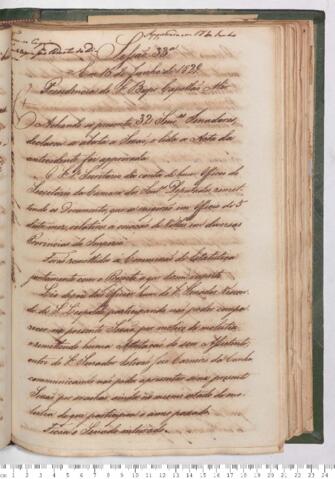 Approvada em 17 de Junho
Sessão 38ª
Em 16 de Junho de 1829
Presidencia do Sr. Bispo Capellão Mór
Achando-se presentes 32 Snrs. Senadores,
declarou-se aberta a Sessão, e lida a Acta da
antecedente foi approvada
O Sr. 1º Secretario deo conta de hum Officio do
Secretario da Camara dos Snrs. Deputados, remet-
tendo os Documentos, que se exigirão em Officio de 5
deste mez, relativos a creação de Villas em diversas
Provincias do Imperio.
Forão remettidos a Commissão de Estatistica
juntamente com a Resposta a que dizem respeito
Leo depois dous Officios hum do Sr. Senador Viscon-
de de S. Leopoldo participando não poder compa-
recer na presente Sessão por motivo de molestia
e remettendo huma Attestação do seo Assistente,
outro do Sr. Senador Carneiro da Cunha
communicando não poder apresentar-se na presente
Sessão por achar-se ainda no mesmo estado de mo-
lestia de que participou o anno passado.
Ficou o Senado inteirado.